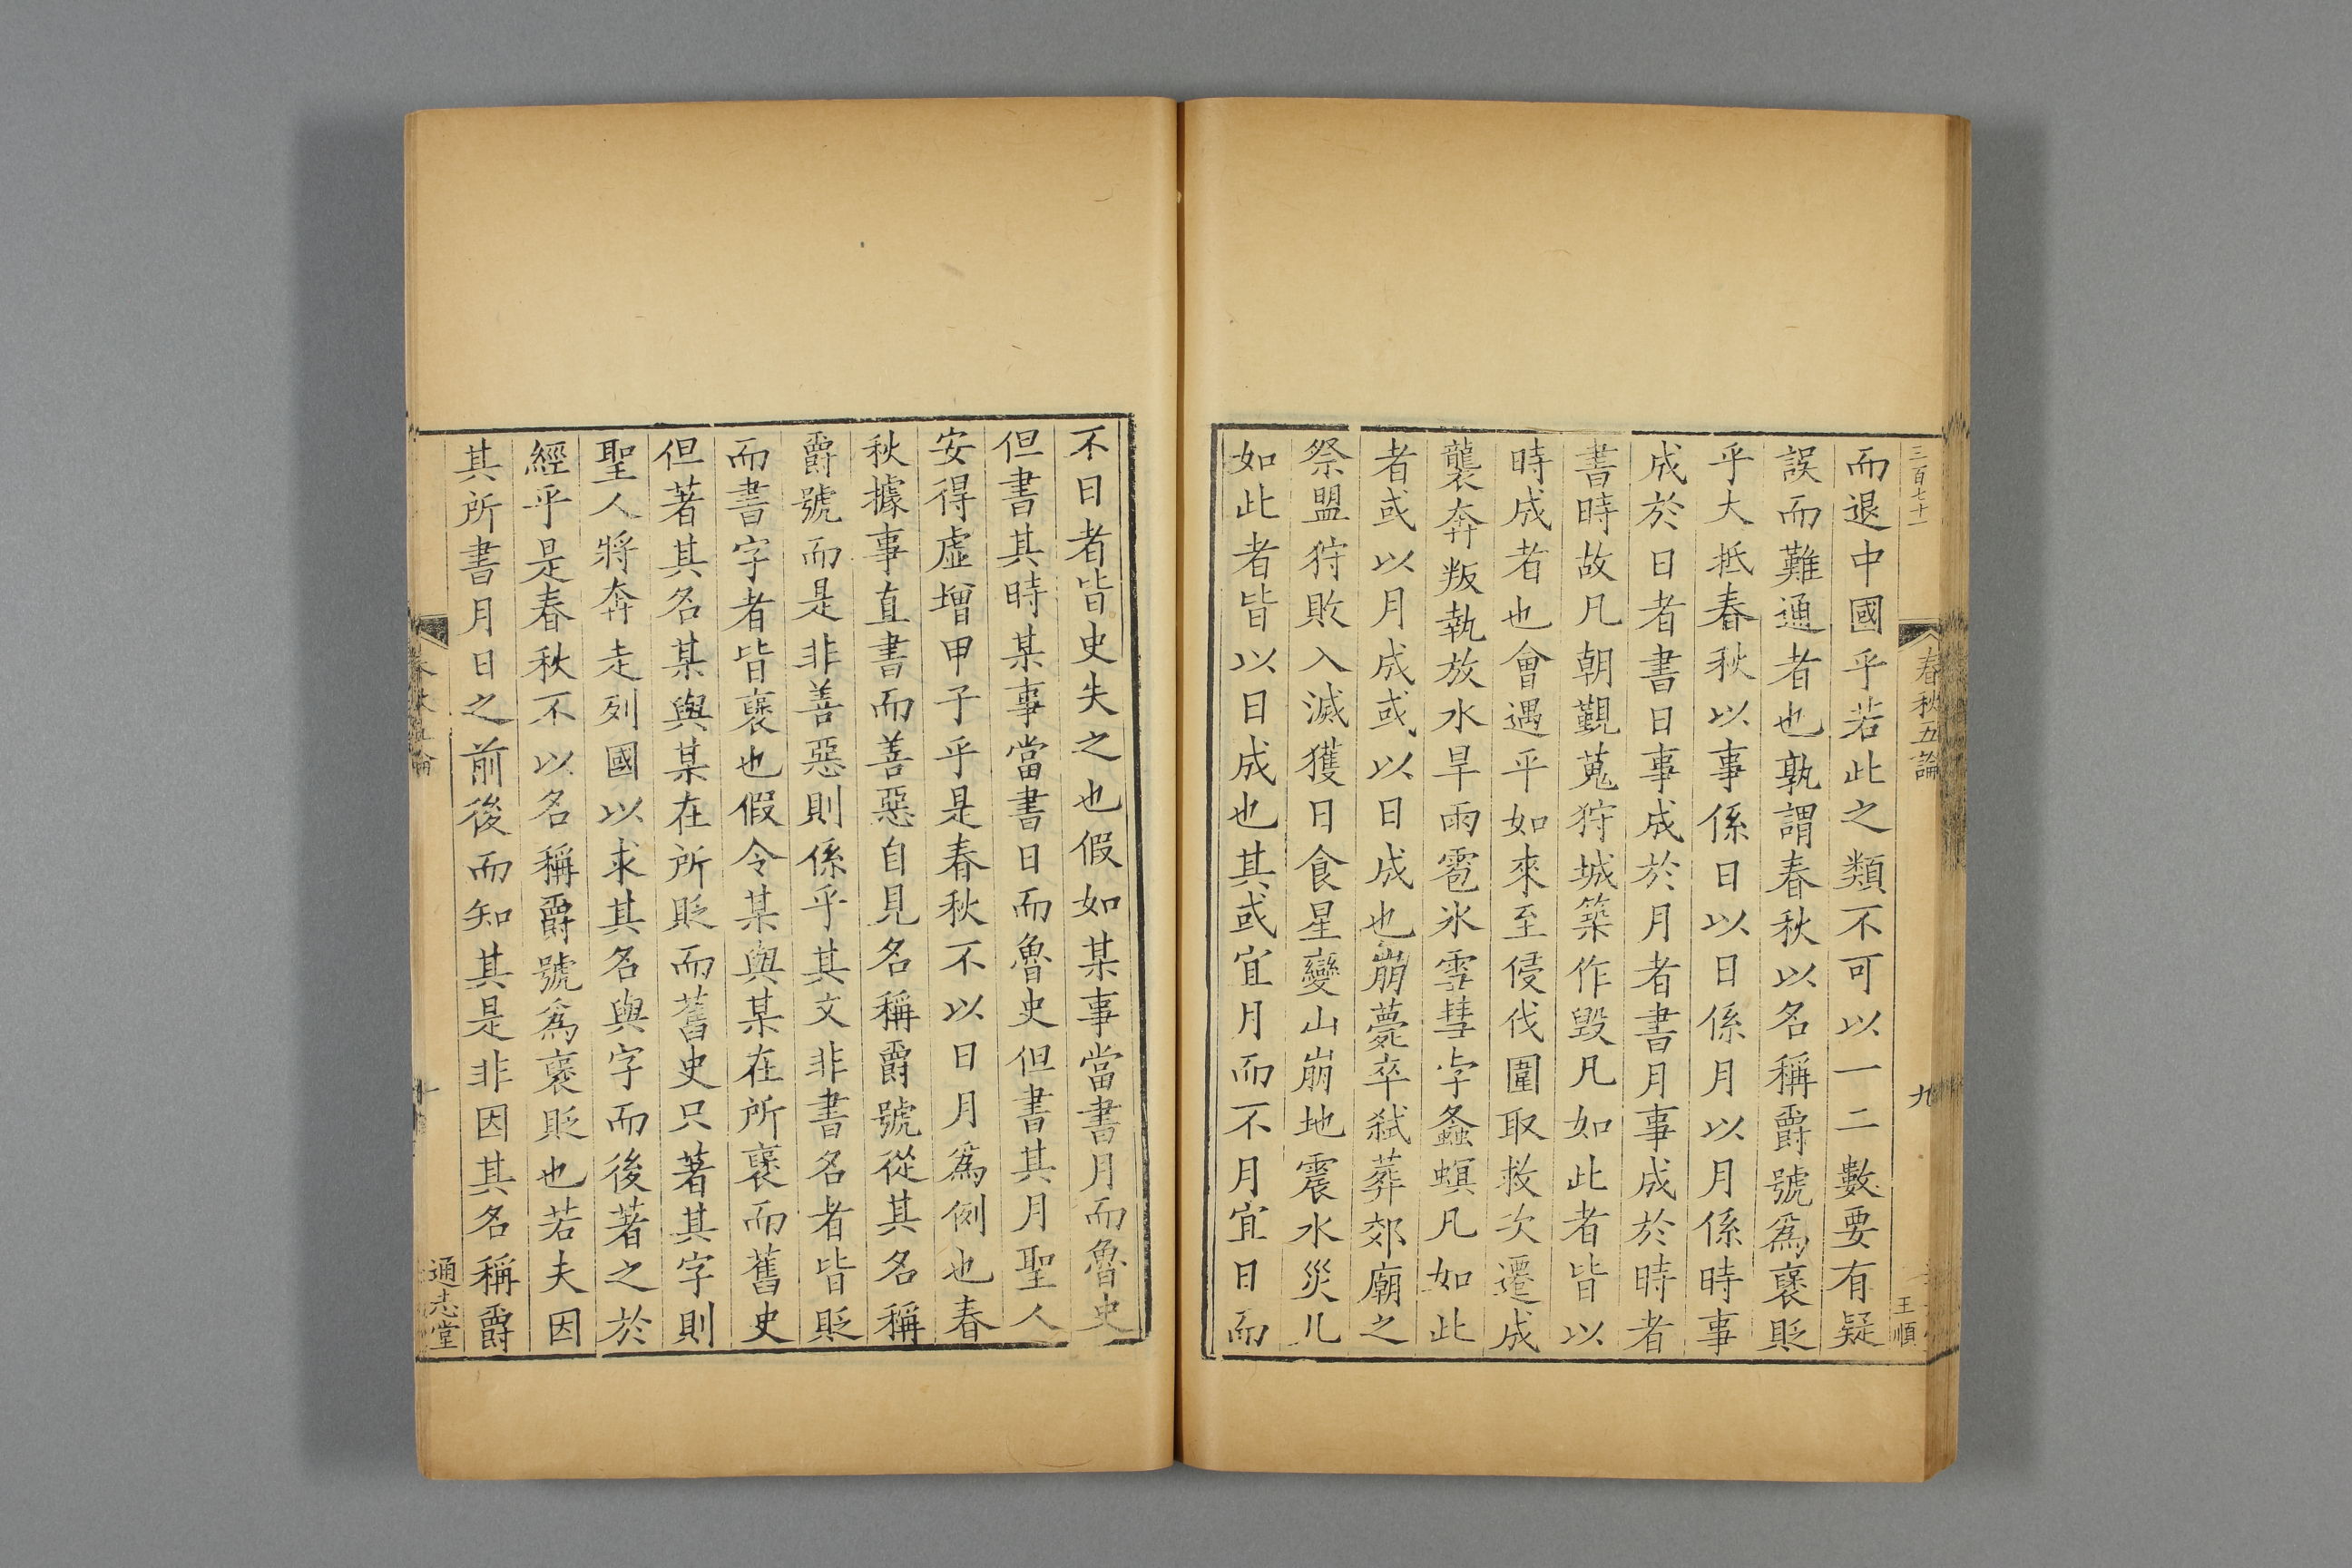 三百七十一
春秋五論
九
王順
而退中國乎若此之類不可以一二數要有疑
誤而難通者也孰謂春秋以名稱爵號爲襃貶
乎大抵春秋以事係日以日係月以月係時事
成於日者書日事成於月者書月事成於時者
書時故凡朝覲蒐狩城築作毀凡如此者皆以
時成者也會遇平如來至侵伐圍取救次遷戍
襲奔叛執放水旱雨雹氷雪彗孛螽螟凡如此
者或以月成或以日成也崩薨卒弑葬郊廟之
祭盟狩敗入滅獲日食星變山崩地震水災凡
如此者皆以日成也其或宜月而不月宜日而
不日者皆史失之也假如某事當書月而魯史
但書其時某事當書日而魯史但書其月聖人
安得虛增甲子乎是春秋不以日月爲例也春
秋據事直書而善惡自見名稱爵號從其名稱
爵號而是非善惡則係乎其文非書名者皆貶
而書字者皆襃也假令某與某在所襃而舊史
但著其名某與某在所貶而舊史只著其字則
聖人將奔走列國以求其名與字而後著之於
經乎是春秋不以名稱爵號爲襃貶也若夫因
其所書月日之前後而知其是非因其名稱爵
春秋五論
十
通志堂